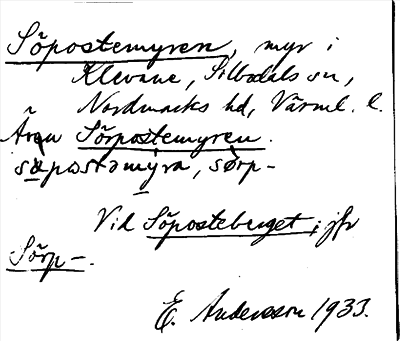 Söpostemyren, myr i
Klevane, Silbodals sn,
Nordmarks hd, Värml. l.
Även Sörpostemyren.
söpostəmyra, sörp-
Vid Söposteberget; jfr
Sörp-.
E. Andersson 1933.